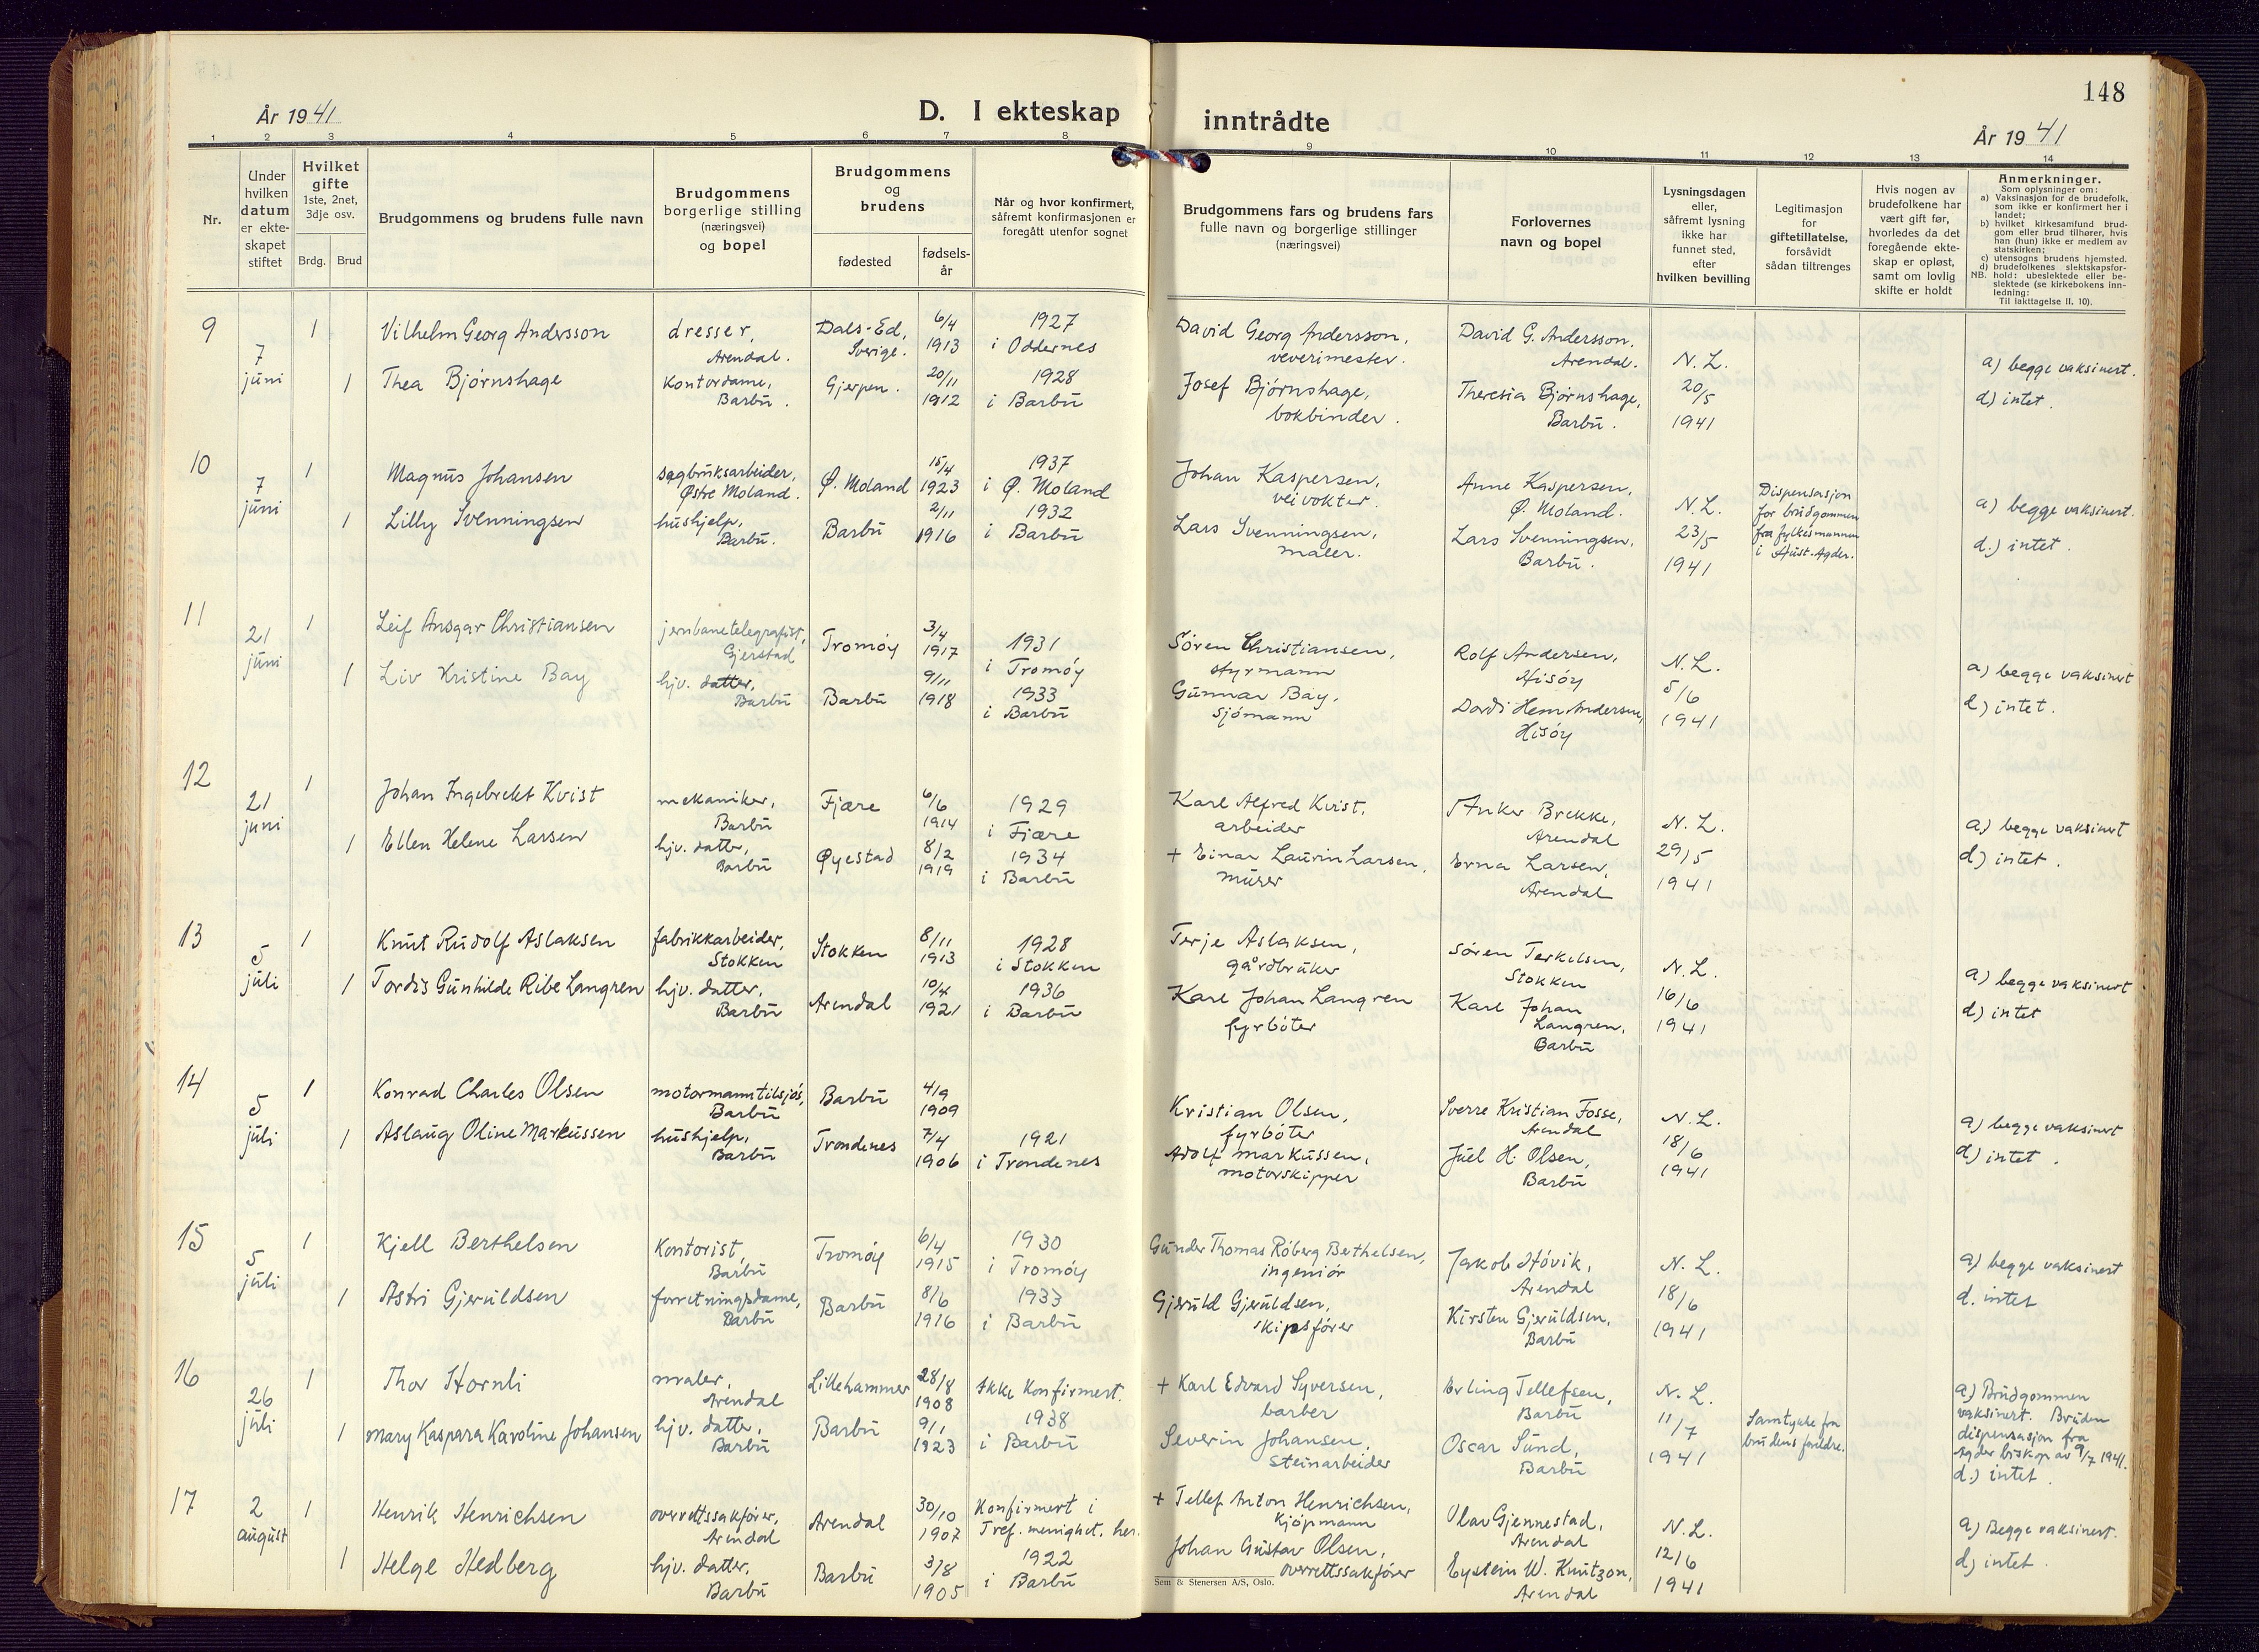 148
År 1941
D. I ekteskap
inntrådte
År 1941
1 2 3 4 5 6 7 8 9 10 11 12 13 14
Nr.
Under
hvilken
datum
er ekte-
skapet
stiftet
Hvilket
gifte
1ste, 2net,
3dje osv.
Brdg. Brud
Brudgommens og brudens fulle navn
Brudgommens
borgerlige stilling
(næringsvei)
og bopel
Brudgommens
og
brudens
fødested
fødsels-
år
Når og hvor konfirmert,
såfremt konfirmasjonen er
foregått utenfor sognet
Brudgommens fars og brudens fars
fulle navn og borgerlige stillinger
(næringsvei)
Forlovernes
navn og bopel
Lysningsdagen
eller,
såfremt lysning
ikke har
funnet sted,
efter
hvilken bevilling
Legitimasjon
for
giftetillatelse,
forsåvidt
sådan tiltrenges
Hvis nogen av
brudefolkene har
vært gift før,
hvorledes da det
foregående ekte-
skap er opløst,
samt om lovlig
skifte er holdt
Anmerkninger.
Som oplysninger om:
a) Vaksinasjon for de brudefolk,
som ikke er konfirmert her i
landet;
b) hvilket kirkesamfund brud-
gom eller brud tilhører, hvis
han (hun) ikke er medlem av
statskirken;
c) utensogns brudens hjemsted.
d) brudefolkenes slektskapsfor-
hold: ubeslektede eller be-
slektede (se kirkebokens inn-
ledning:
NB. Til iakttagelse II. 10).
9
7
juni
1
Vilhelm Georg Andersson
dresser,
Arendal.
Dals-Ed,
Sverige.
6/4
1913
1927
i Oddernes
David Georg Andersson,
veverimester.
David G. Andersson.
Arendal.
N. L.
20/5
1941
a) begge vaksinert.
d) intet.
1
Thea Bjørnshage
Kontordame,
Barbu.
Gjerpen.
20/11
1912
1928
i Barbu
Josef Bjørnshage,
bokbinder.
Theresia Bjørnshage,
Barbu.
10
7
juni
1
Magnus Johansen
sagbruksarbeider,
Østre Moland.
Ø. Moland
15/4
1923
1937
i Ø. Moland
Johan Kaspersen,
veivokter.
Anne Kaspersen,
Ø. Moland.
N. L.
23/5
1941
Dispensasjon
for brudgommen
fra fylkesmannen
i Aust-Agder.
a) begge vaksinert.
d.) intet.
1
Lilly Svenningsen
hushjelp,
Barbu.
Barbu
2/11
1916
1932
i Barbu
Lars Svenningsen,
maler.
Lars Svenningsen,
Barbu.
11
21
juni
1
Leif Ansgar Christiansen
jernbanetelegrafist,
Gjerstad
Tromøy
3/4
1917
1931
i Tromøy
Søren Christiansen,
styrmann
Rolf Andersen,
Hisøy
N. L.
5/6
1941
a) begge vaksinert
d) intet.
1
Liv Kristine Bay
hjv. datter,
Barbu
Barbu
9/11
1918
1933
i Barbu
Gunnar Bay,
sjømann
Dordi Hem Andersen,
Hisøy
12
21
juni
1
Johan Ingebrekt Kvist
mekaniker,
Barbu
Fjære
6/6
1914
1929
i Fjære
Karl Alfred Kvist,
arbeider
Anker Brekke,
Arendal
N. L.
29/5
1941
a) begge vaksinert
d) intet.
1
Ellen Helene Larsen
hjv. datter,
Barbu
Øyestad
8/2
1919
1934
i Barbu
+ Einar Laurin Larsen,
murer
Erna Larsen,
Arendal
13
5
juli
1
Knut Rudolf Aslaksen
fabrikkarbeider,
Stokken
Stokken
8/11
1913
1928
i Stokken
Terje Aslaksen,
gårdbruker
Søren Terkelsen,
Stokken
N. L.
16/6
1941
a) begge vaksinert
d) intet
1
Tordis Gunhilde Ribe Langren
hjv. datter,
Barbu
Arendal
10/4
1921
1936
i Barbu
Karl Johan Langren
fyrbøter
Karl Johan
Langren,
Barbu
14
5
juli
1
Konrad Charles Olsen
motormann tilsjøs,
Barbu
Barbu
4/9
1909
Kristian Olsen,
fyrbøter
Sverre Kristian Fosse,
Arendal
N. L.
18/6
1941
a) begge vaksinert
d) intet.
1
Aslaug Oline Markussen
hushjelp,
Barbu
Trondenes
7/4
1906
1921
i Trondenes
Adolf Markussen,
motorskipper
Juel H. Olsen,
Barbu
15
5
juli
1
Kjell Berthelsen
Kontorist,
Barbu
Tromøy
6/4
1915
1930
i Tromøy
Gunder Thomas Røberg Berthelsen,
ingeniør
Jakob Høvik,
Arendal
N. L.
18/6
1941
a) begge vaksinert
d. intet
1
Astri Gjeruldsen
forretningsdame,
Barbu
Barbu
8/6
1916
1933
i Barbu
Gjeruld Gjeruldsen,
skipsfører
Kirsten Gjeruldsen,
Barbu
16
26
juli
1
Thor Hornli
maler,
Arendal
Lillehammer
28/8
1908
Ikke konfirmert.
+ Karl Edvard Syversen,
barber
Erling Tellefsen,
Barbu
N. L.
11/7
1941
Samtykke fra
brudens foreldre.
a) Brudgommen
vaksinert. Bruden
dispensasjon fra
Agder biskop av 9/7 1941.
d.) intet.
1
Mary Kaspara Karoline Johansen
hjv. datter,
Barbu
Barbu
9/1
1923
1938
i Barbu
Severin Johansen,
Steinarbeider
Oscar Sund,
Barbu
17
2
august
1
Henrik Henrichsen
overrettssakfører,
Arendal
Arendal
30/10
1907
Konfirmert i
Tref. menighet. her.
+ Tellef Anton Henrichsen,
Kjøpmann
Olav Gjennestad,
Arendal
N. L.
12/6
1941
a) Begge vaksinert.
d) intet.
1
Helge Hedberg
hjv. datter,
Barbu
Barbu
3/8
1905
1922
i Barbu
Johan Gustav Olsen,
overrettssakfører
Eystein W. Knutzon,
Arendal
Sem & Stenersen A/S, Oslo.